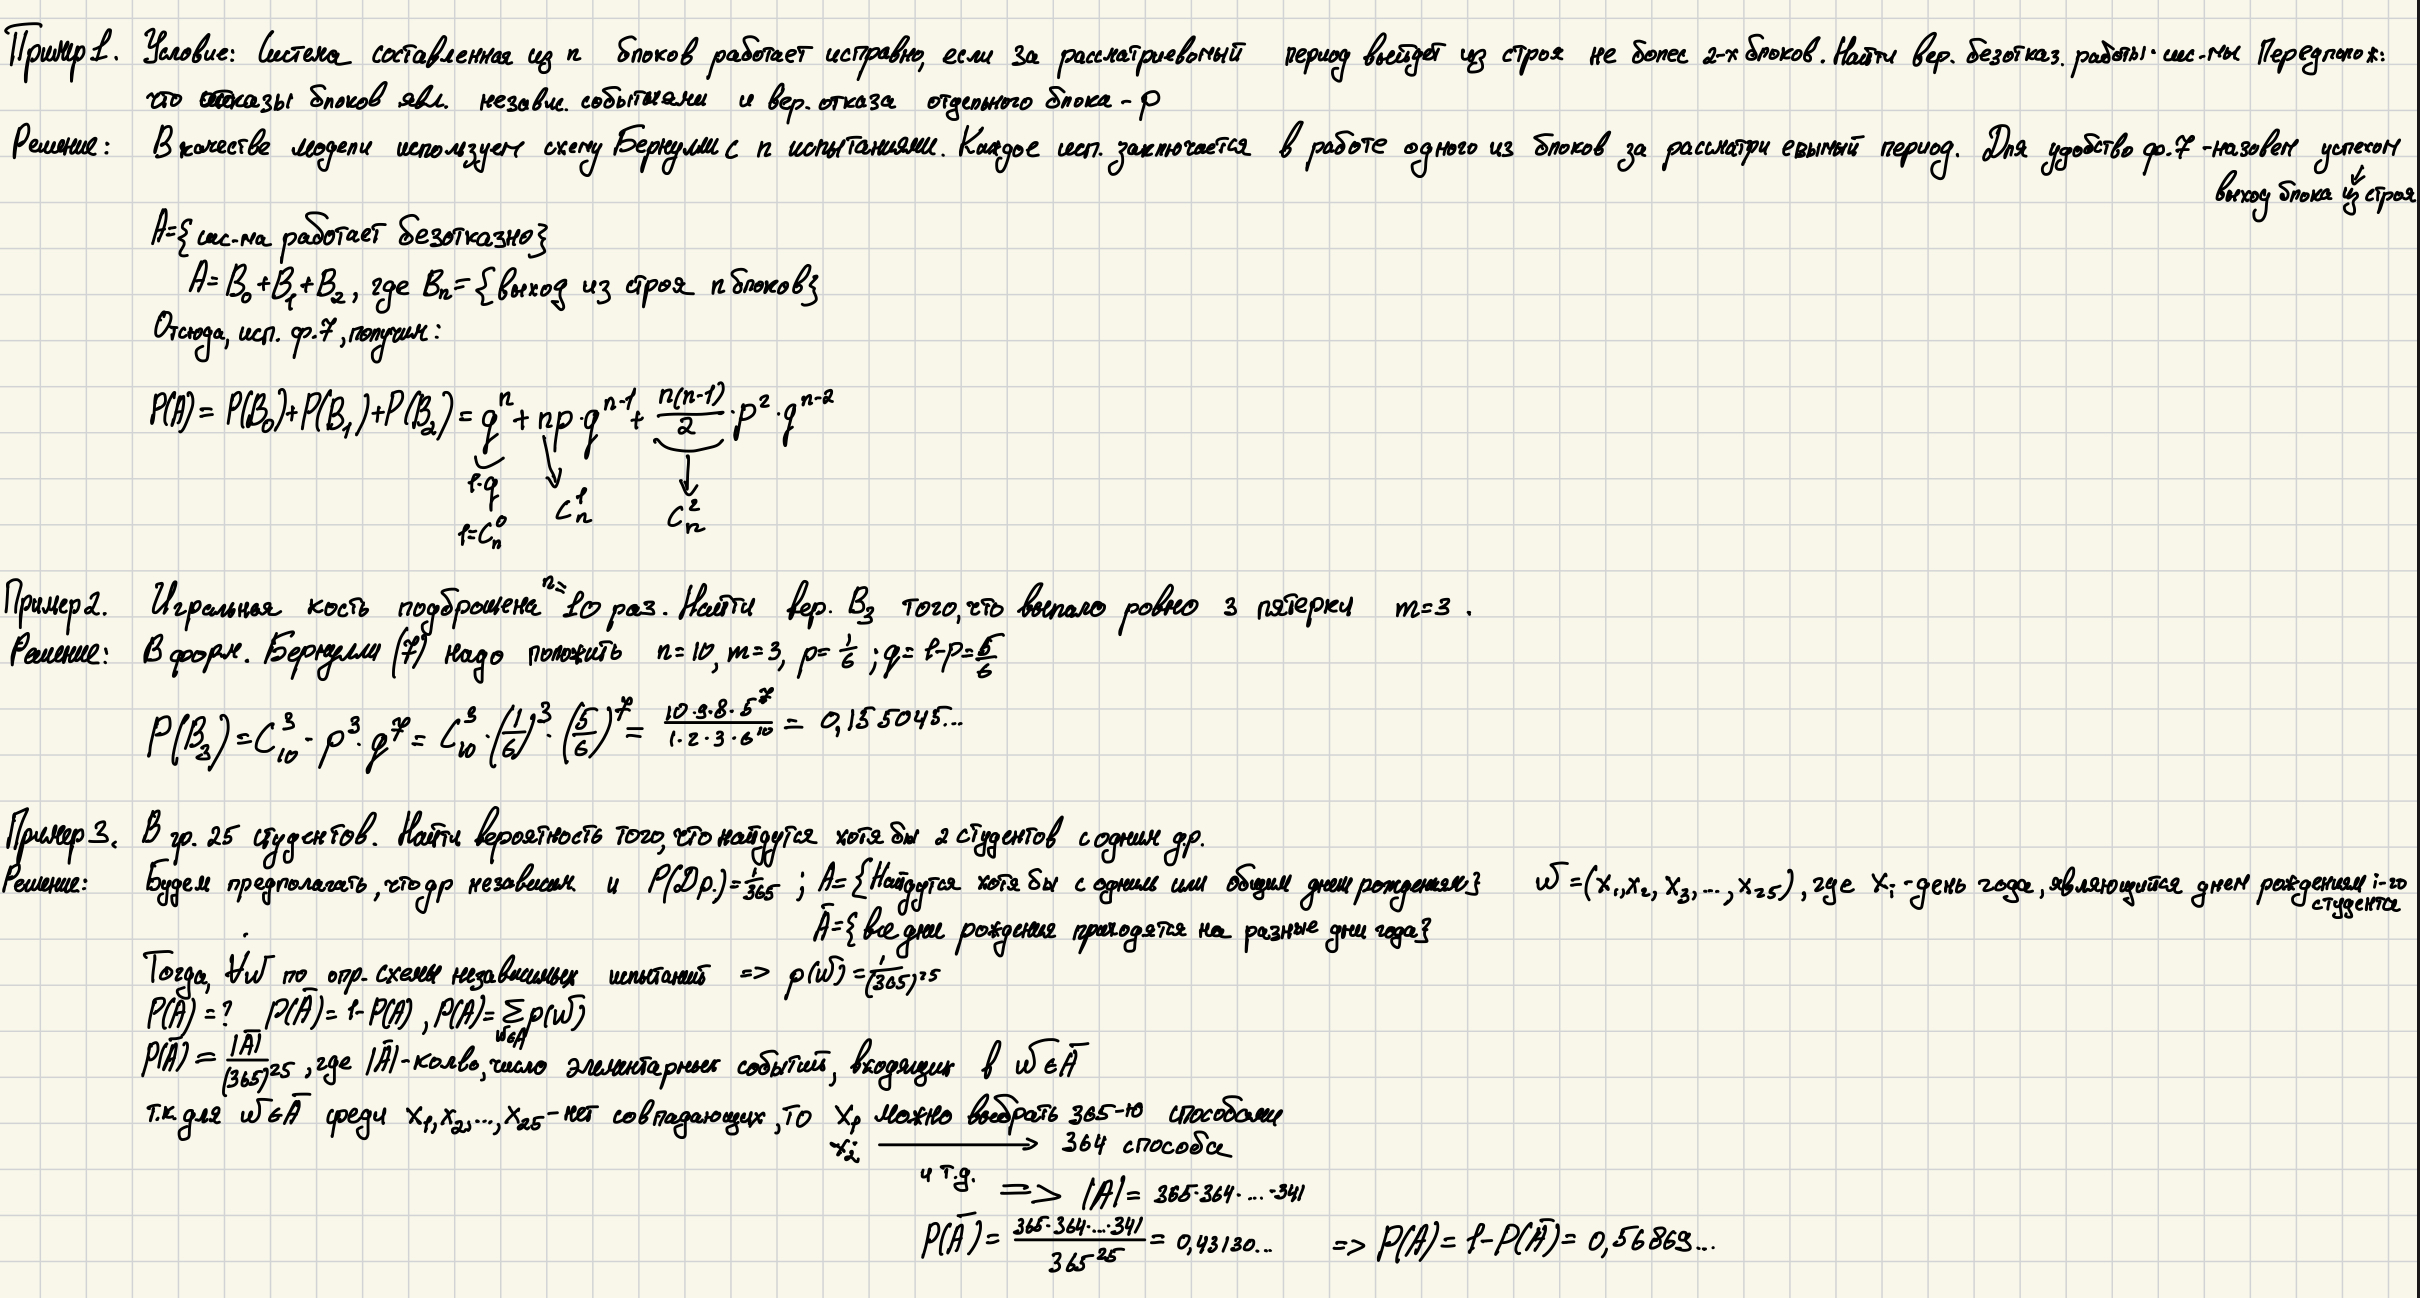 Пример 1. Условие: Система составленная из n блоков работает исправно, если за рассматриевомый период выйдет из строя не более 2-х блоков. Найти вер. безотказ. работы сис-мы Передполож:
что отказы блоков явл. независ. событиями и вер. отказа отдельного блока - p
Решение: В качестве модели используем схему Бернулли с n испытаниями. Каждое исп. заключается в работе одного из блоков за рассматри евымый период. Для удобство ф.7 - назовем успехом
выход блока из строя
A={сис-ма работает безотказно}
A=B₀+B₁+B₂, где Bₙ={выход из строя n блоков}
Отсюда, исп. ф.7, получим:
P(A)= P(B₀)+P(B₁)+P(B₂)= qⁿ + np·qⁿ⁻¹ + n(n-1)/2 · p² · qⁿ⁻²
1·q
1=Cₙ⁰ Cₙ¹ Cₙ²
Пример 2. Игральная кость подброшена n= 10 раз. Найти вер. B₃ того, что выпало ровно 3 пятерки m=3.
Решение: В форм. Бернулли (7) надо положить n=10, m=3, p=1/6 ; q=1-p=5/6
P(B₃)=C₁₀³ · p³ · q⁷ = C₁₀³ · (1/6)³ · (5/6)⁷ = 10·9·8·5⁷/1·2·3·6¹⁰ = 0,155045...
Пример 3. В гр. 25 студентов. Найти вероятность того, что найдутся хотя бы 2 студентов с одним д.р.
Решение: Будем предполагать, что др независим и P(Др.)=1/365 ; A={Найдутся хотя бы с одним или общим днем рождениям} ω=(x₁,x₂,x₃,...,x₂₅), где xᵢ - день года, являющийся днем рождениям i-го
студента
Ā={все дни рождения приходятся на разные дни года}
Тогда, ∀ω по опр. схемы независимых испытаний => p(ω)=1/(365)²⁵
P(Ā)=? P(Ā)=1-P(A), P(A)=Σ p(ω)
ω∈A
P(Ā)= |Ā|/(365)²⁵, где |Ā| - колво, число элементарных событий, входящих в ω∈Ā
т.к. для ω∈Ā среди x₁,x₂,...,x₂₅ - нет совпадающих, то x₁ можно выбрать 365-ю способами
x₂ → 364 способа
и т.д. => |A|= 365·364·...·341
P(Ā)= 365·364·...·341/365²⁵ = 0,43130... => P(A)=1-P(Ā)= 0,56869...